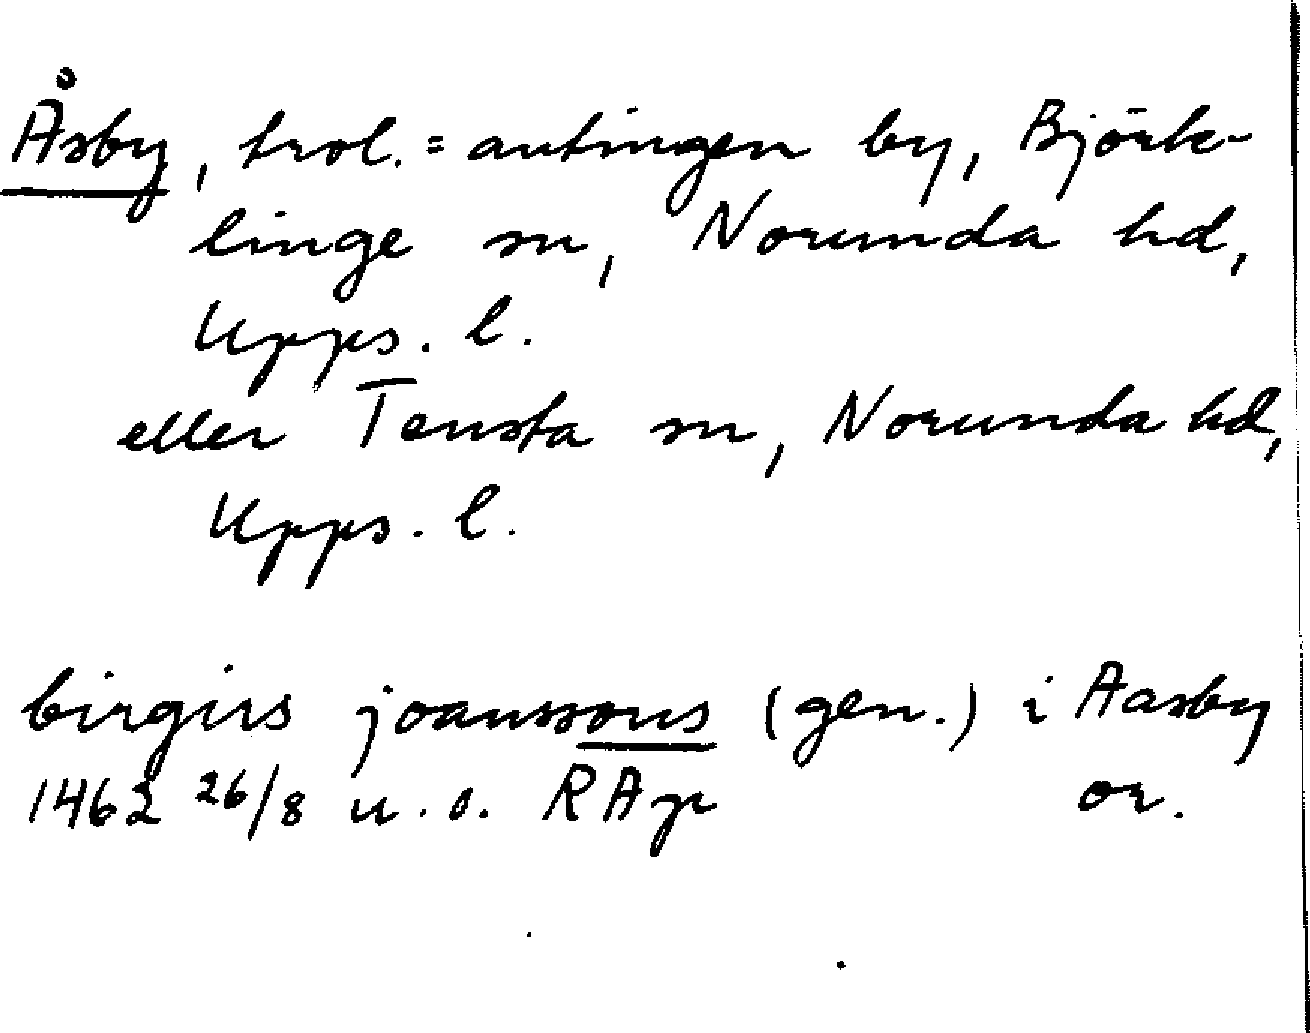 Åsby, trol. = antingen by, Björk-
linge sn, Norunda hd,
Upps. l.
eller Tensta sn, Norunda hd,
Upps. l.
birgirs joanssons (gen.) i Aasby
1462 26/8 u.o. RAp or.